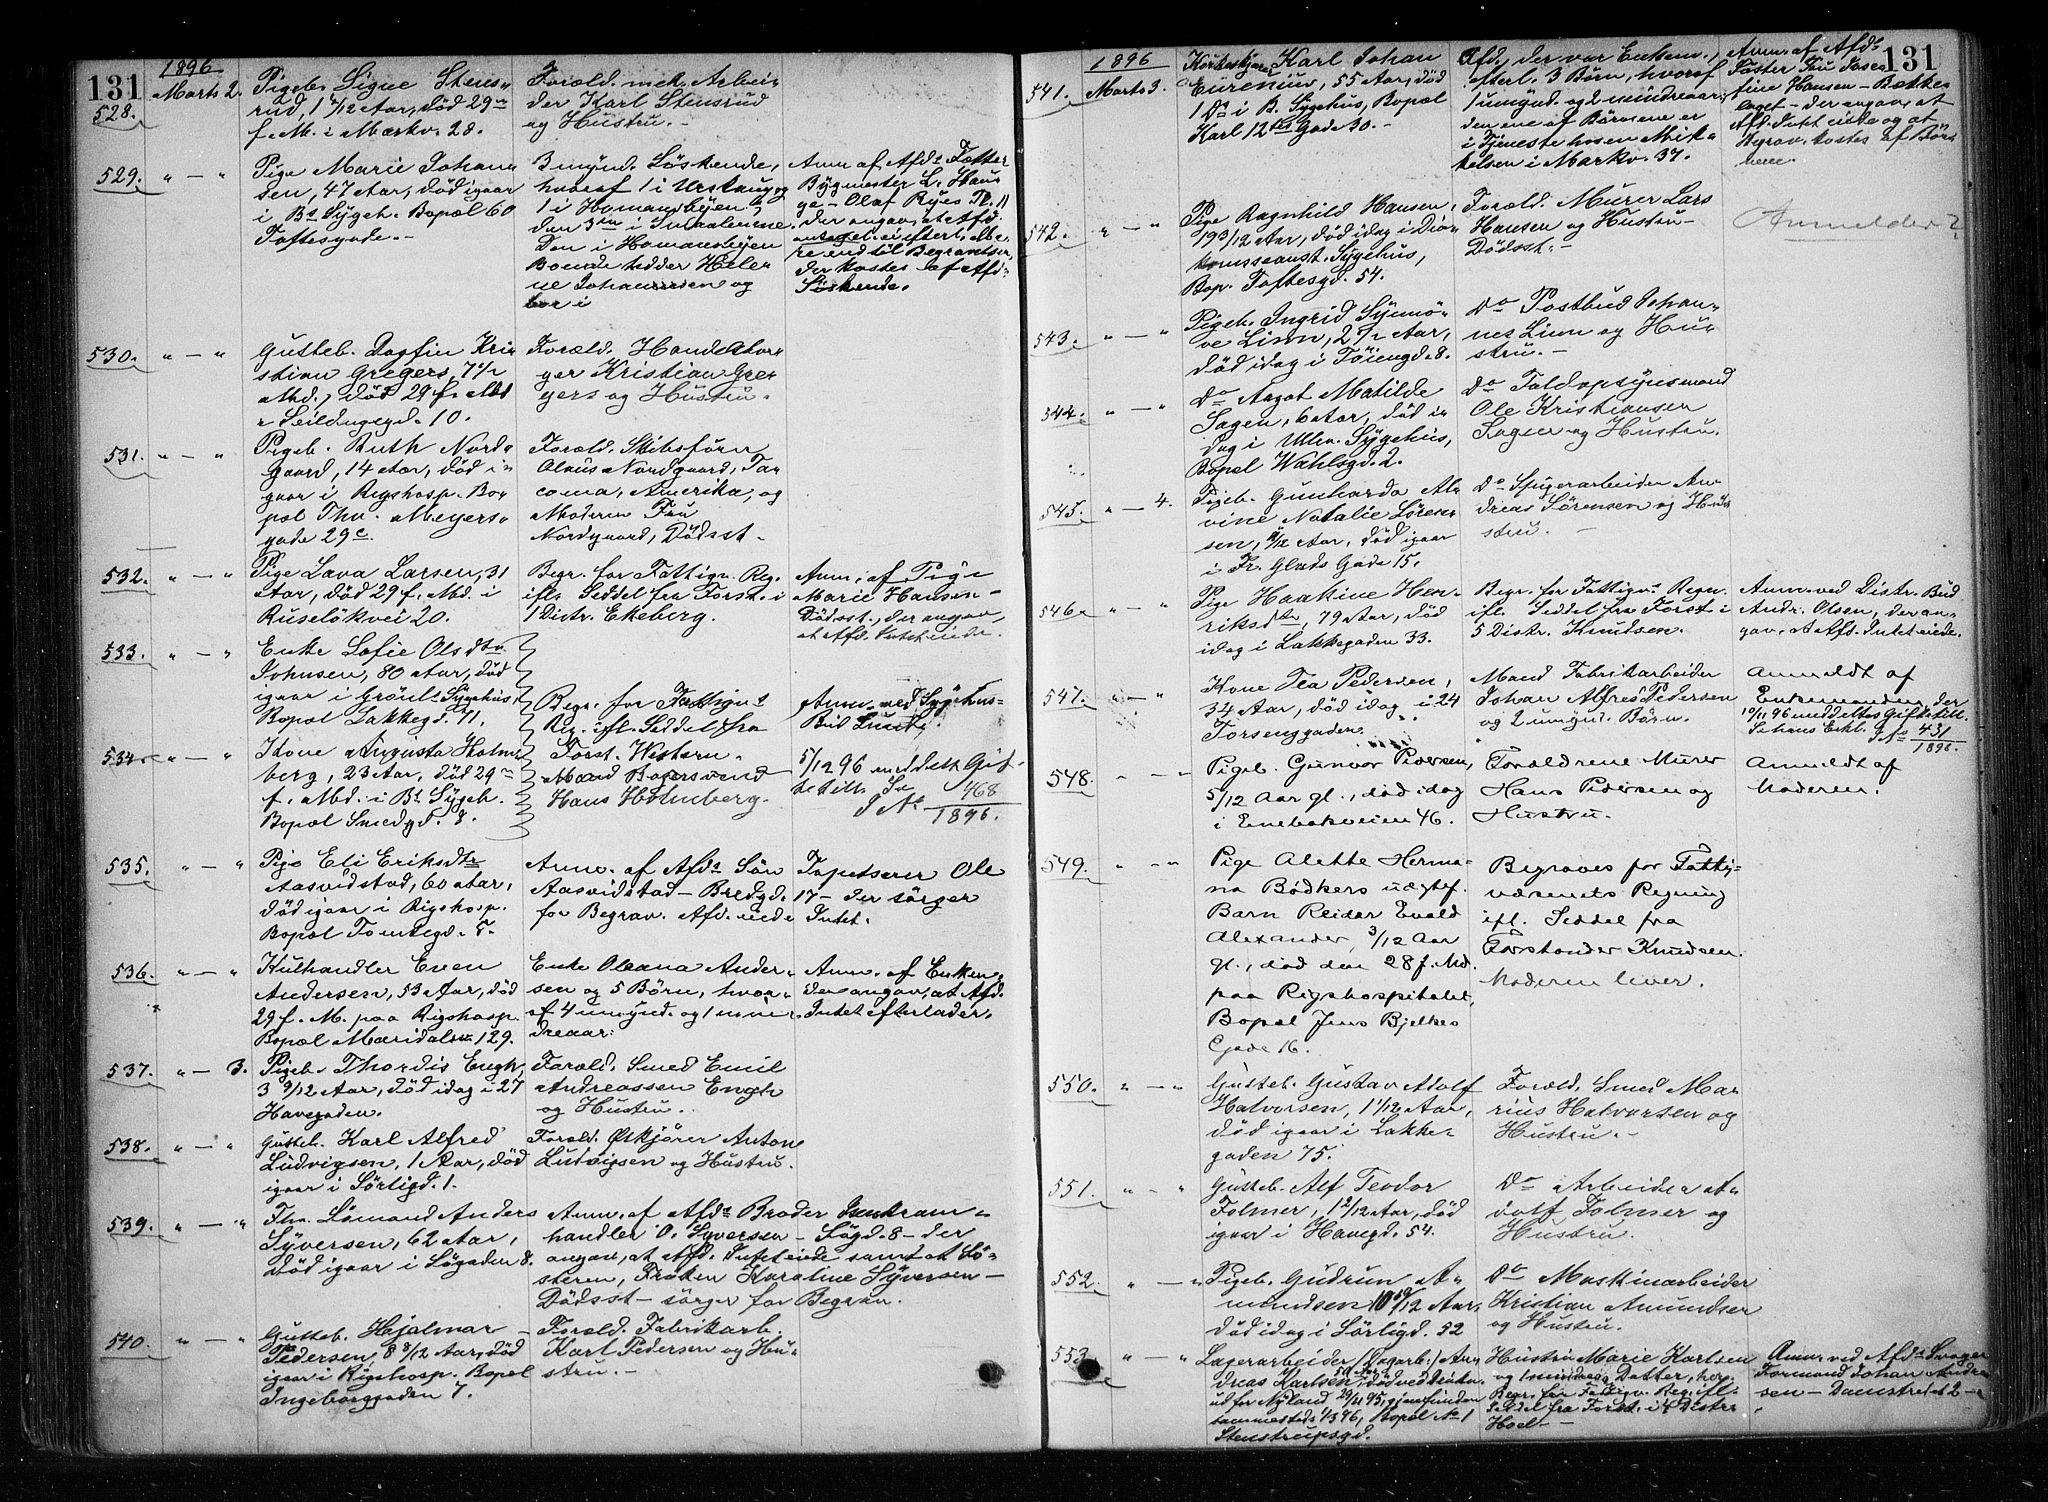 131
1896
528. Marts 2.
Pigeb. Signe Stens-
rud, 1 /12 Aar, død 29de
f. M. i Markv. 28.
Foræld. mek. Arbei-
der Karl Stensrud
og Hustru.
529. " — "
Pige Marie Johan-
sen, 47 Aar, død igaar
i Bs Sygeh. Bopæl 60
Toftesgade.
3 mynd. Söskende,
hvoraf 1 i Urskoug og
1 i Homansbyen,
den 3die i Smaalenene
Den i Homansbyen
Boende hedder Hele-
ne Johannesen og
bor i
Anm. af Afds Fætter
Bygmester L. Hau-
ge — Olaf Ryes Pl. 11
der angav, at Afd.
antagel. ei efterl. me-
re end til Begravelsen,
der kostes af Afds
Söskende.
530. " — "
Gutteb. Dagfin Kri-
stian Gregers, 7 1/2
Md., død 29 f. Md
i Seildugsgd. 10.
Foræld. Handelsbor-
ger Kristian Gre-
gers og Hustru.
531. " — "
Pigeb. Ruth Nord-
gaard, 14 Aar, død i-
gaar i Rigshosp. Bo-
pæl Thv. Meyers-
gade 29c.
Foræld. Skibsförer
Olaus Nordgaard, Ta-
coma, Amerika, og
Moderen Fru
Nordgaard, Dödsst.
532. " — "
Pige Lava Larsen, 31
Aar, død 29 f. Md. i
Ruselökvei 20.
Begr. for Fattigv. Reg.
ifl. Seddel fra Forst. i
1 Distr. Ekeberg.
Anm. af Pige
Marie Hansen —
Dödsst., der angav,
at Afd. Intet eiede.
533. " — "
Enke Sofie Olsdtr
Johnsen, 80 Aar, død
igaar i Grönl. Sygehus,
Bopæl Lakkegd. 71.
Begr. for Fattigvs
Reg. ifl. Seddel fra
Forst. Western.
Anm. ved Sygehus-
Bud Lund.
534. " — "
Kone Augusta Holm-
berg, 23 Aar, død 29de
f. Md. i Bs Sygeh.
Bopæl Smedgd. 8.
Mand
Hans Holmberg.
5/12 96 meddelt Gif-
tetill.
J No 468
1896.
535. " — "
Pige Eli Eriksdtr
Aasvidstad, 60 Aar,
død igaar i Rigshosp.
Bopæl Tomtegd. 5.
Anm. af Afds Sön Tapetserer Ole
Aasvidstad — Bredgd. 17 — der sörger
for Begrav. Afd. eiede Intet.
536. " — "
Kulhandler Even
Andersen, 53 Aar, død
29 f. M. paa Rigshosp.
Bopæl Maridalsv. 129.
Enke Oleana Ander-
sen og 5 Börn, hvor-
af 4 umynd. og 1 min-
dreaar.
Anm. af Enken,
der angav, at Afd.
Intet efterlader.
537. " — 3.
Pigeb. Thordis Engh,
3 9/12 Aar, død idag i 27
Havegaden.
Foræld. Smed Emil
Andreassen Engh
og Hustru.
538. " — "
Gutteb. Karl Alfred
Ludvigsen, 1 Aar, død
igaar i Sörligd. 1.
Foræld. Ölkjörer Anton
Ludvigsen og Hustru.
539. " — "
Thv. Lömand Anders
Syversen, 62 Aar,
død igaar i Lögaden 8.
Anm. af Afds Broder Jernkram-
handler O. Syversen — Lögd. 8 — der
angav, at Afd. Intet eiede samt at Sö-
steren, Fröken Karoline Syversen —
Dödsst — sörger for Begrav.
540. " — "
Gutteb. Hjalmar
Pedersen, 8 8/12 Aar, død
igaar i Rigshosp. Bopæl
Ingeborggaden 7.
Foræld. Fabrikarb.
Karl Pedersen og Hu-
stru.
131
1896
541. Marts 3.
Karl Johan
Eurenius, 55 Aar, død
1 Ds i B. Sygehus, Bopæl
Karl 12tes Gade 30.
Afd., der var Enkem.,
efterl. 3 Börn, hvoraf
1 umynd. og 2 mindreaar.,
den ene af Börnene er
i Tjeneste hosen Mik-
kelsen i Markv. 37.
Anm. af Afds
Söster Fru Jose-
fine Hansen — Bække-
laget — der angav, at
Afd. Intet eiede og at
Begrav. kostes af Bör-
nene.
542. " — "
Pige Ragnhild Hansen,
19 3/12 Aar, død idag i Dia-
konisseanst. Sygehus,
Bop. Toftesgd. 54.
Foræld. Murer Lars
Hansen og Hustru —
Dödsst.
Anmelder?
543. " — "
Pigeb. Ingrid Synnö-
ve Linn, 2 1/2 Aar,
død idag i Töiengd. 8.
Do Postbud Johan-
nes Linn og Hu-
stru.
544. " — "
Do Aagot Matilde
Sagen, 6 Aar, død i-
dag i Ulev. Sygehus,
Bopæl Wahlsgd. 2.
Do Toldopsynsmand
Ole Kristiansen
Sagen og Hustru.
545. " — 4.
Pigeb. Gunharda Al-
vine Natalie Sören-
sen, /12 Aar, død igaar
i Fr. Glads Gade 15.
Do Spigerarbeider An-
dreas Sörensen og Hu-
stru.
546. " — "
Pige Haakine Hen-
riksdtr, 79 Aar, død
idag i Lakkegaden 33.
Begr. for Fattigvs Regn.
ifl. Seddel fra Forst. i
5 Distr. Knudsen.
Anm. ved Distr. Bud
Andr. Olsen, der an-
gav, at Afd. Intet eiede.
547. " — "
Kone Tea Pedersen,
34 Aar, død idag i 24
Torsenggaden.
Mand Fabrikarbeider
Johan Alfred Pedersen
og 2 umynd. Börn.
Anmeldt af
Enkemanden, der
10/11 96 meddeltes Giftetill.
J No 431
1896.
548. " — "
Pigeb. Gunvor Pedersen,
5/12 Aar gl., död idag
i Enebakveien 46.
Forældrene Murer
Hans Pedersen og
Hustru.
Anmeldt af
Moderen.
549. " — "
Pige Alette Herma-
na Bödkers uægtef.
Barn Reidar Evald
Alexander, 3/12 Aar
gl., död den 28 f. Md.
paa Rigshospitalet,
Bopæl Jens Bjelkes
Gade 16.
Begraves for Fattig-
væsenets Regning
ifl. Seddel fra
Forstander Knudsen.
Moderen lever.
550. " — "
Gutteb. Gustav Adolf
Halvorsen, 1 1/12 Aar,
død igaar i Lakke-
gaden 75.
Foræld. Smed Ma-
rius Halvorsen og
Hustru.
551. " — "
Gutteb. Alf Teodor
Folmer, 1 2/12 Aar, død
igaar i Havegd. 54.
Do Arbeider A-
dolf Folmer og
Hustru.
552. " — "
Pigeb. Gudrun A-
mundsen 10 10/12 Aar,
død idag i Sörligd. 52
Do Maskinarbeider
Kristian Amundsen
og Hustru.
553. " — "
Lagerarbeider (Dagarb.) An-
dreas Karlsen, død ved Drukn.
ud for Nyland 29/11 95, gjenfunden
sammesteds 1/3 96, Bopæl No 1
Stenstrupsgd.
Hustru Marie Karlsen
og 1 mindreaar. Datter,
Begr. for Fattigv. Reg. ifl.
Seddel fra Forst. i 4 Distr.
Hoel.
Anm. ved Afds Svoger
Formand Johan Andre-
sen — Damstredet 2 —